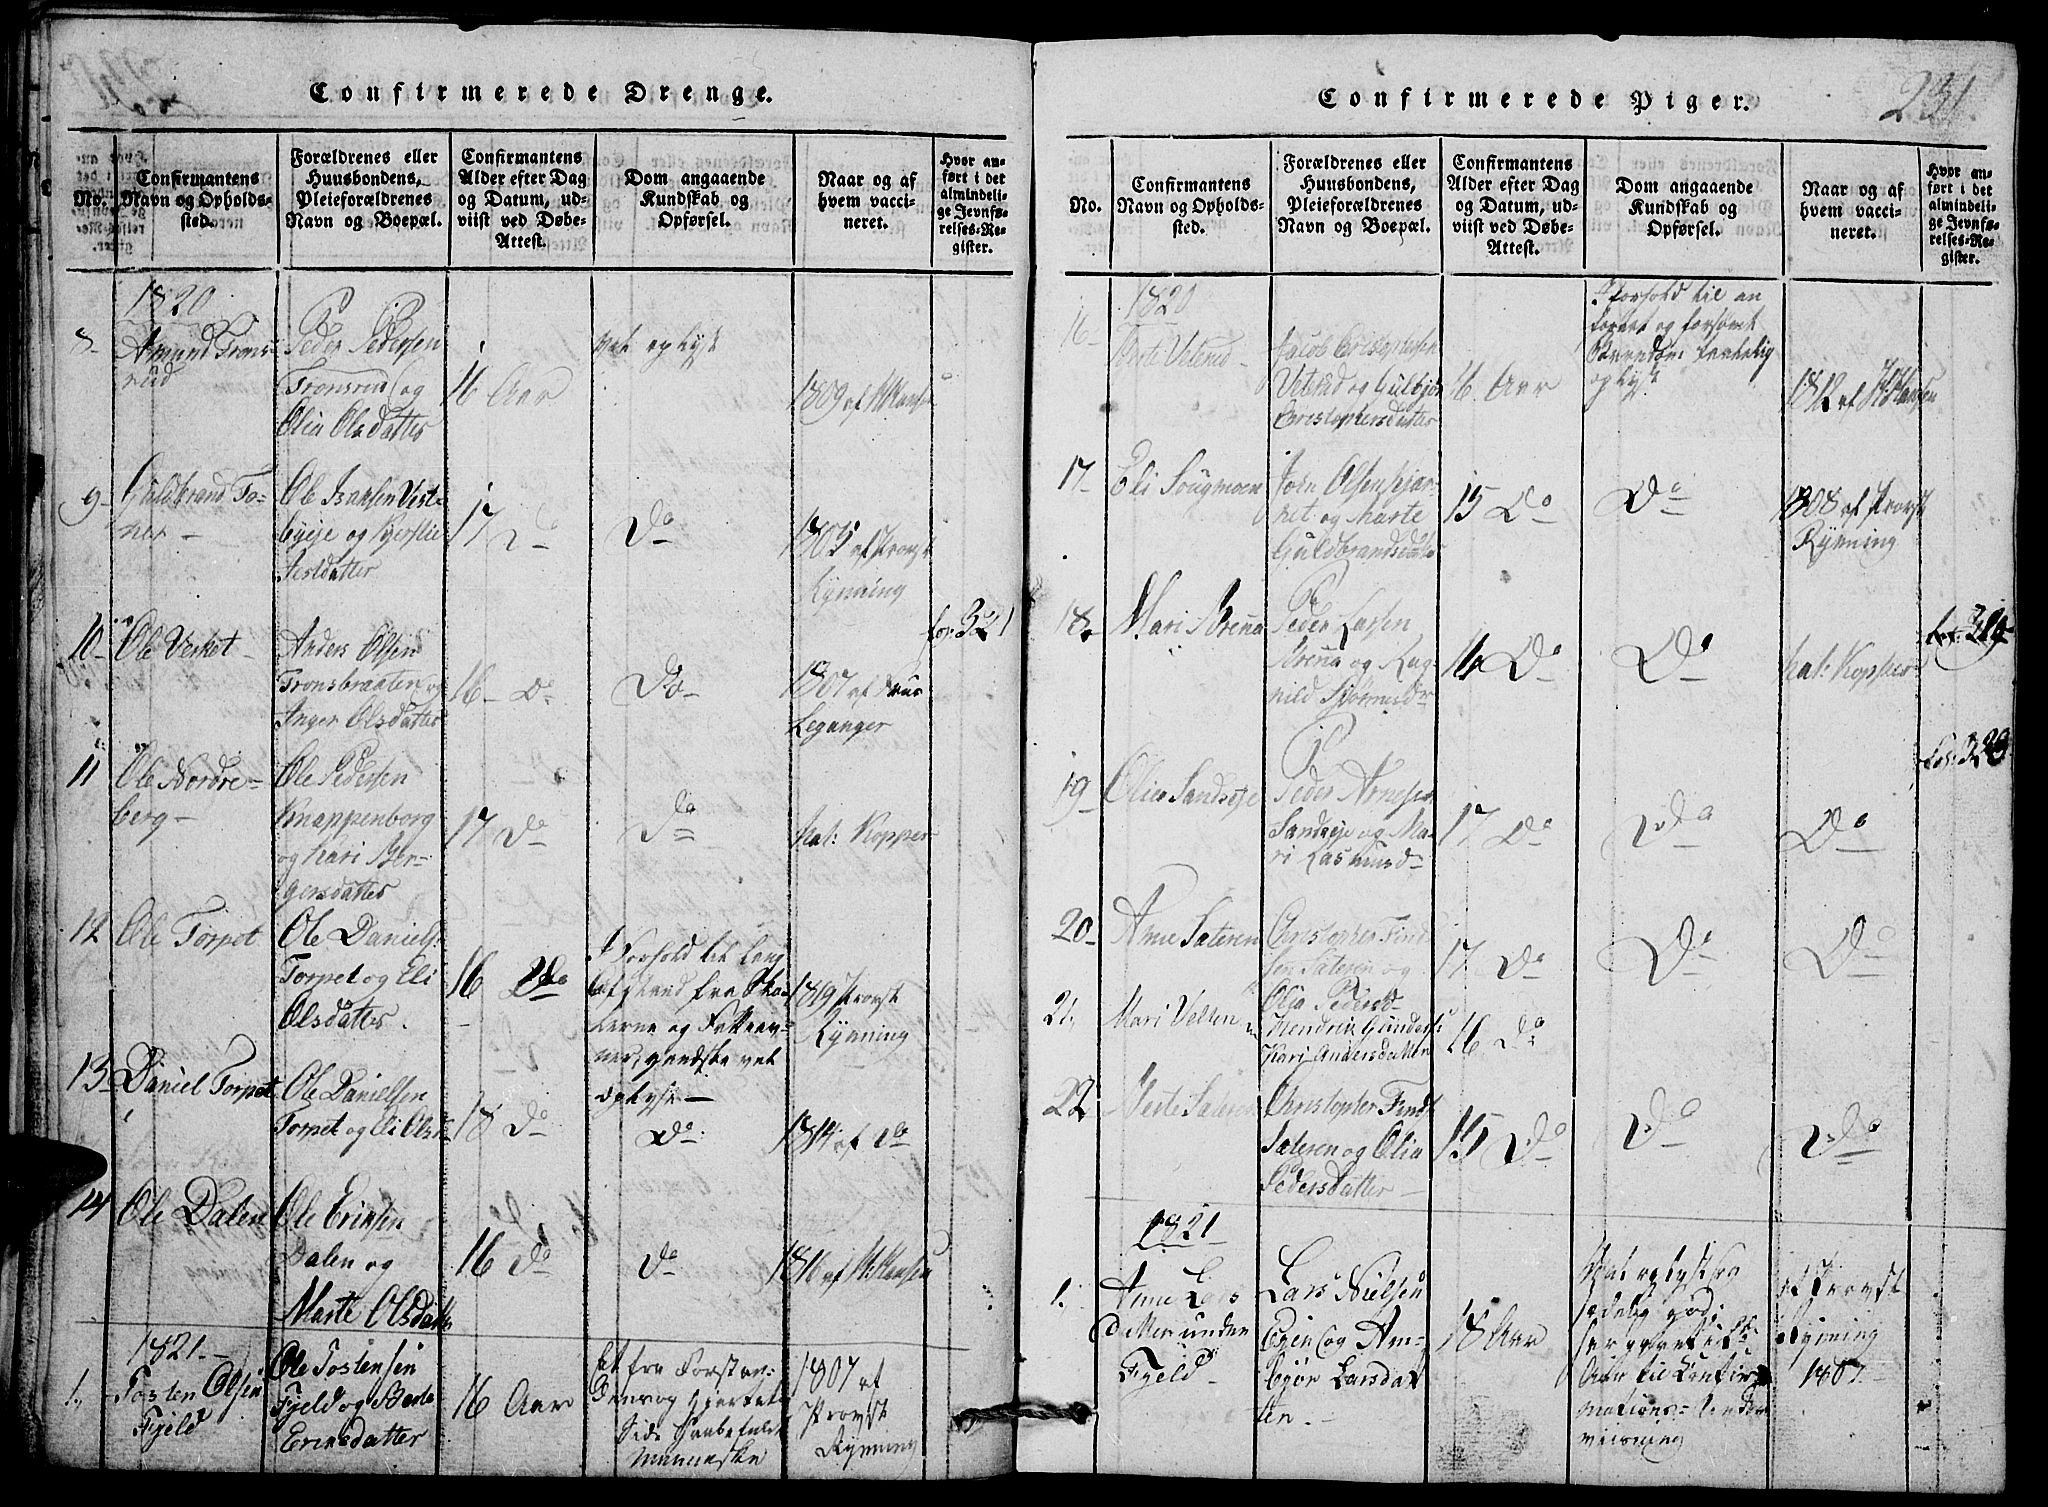 Confirmerede Drenge.
No.
Confirmantens
Navn og Opholds-
sted.
Forældrenes eller
Huusbondens,
Pleieforældrenes
Navn og Boepæl.
Confirmantens
Alder efter Dag
og Datum, ud-
viist ved Døbe-
Attest.
Dom angaaende
Kundskab og
Opførsel.
Naar og af
hvem vacci-
neret.
Hvor an-
ført i det
almindeli-
ge Jevnfø-
relses-Re-
gister.
1820
8-
Amund Trons-
rud
Peder Pedersen
Tronsrud og
Olia Olsdatter
16 Aar
vel oplyst
1809 af Hansen
9-
Guldbrand To-
ner -
Ole Isaksen Veste-
byeje og Kjerstie
17 Do
Do
1805 af Provst
Rynning
10-
Ole Verket -
Anders Olsen
Tronsbraaten og
Inger Olsdatter
16- Do
Do-
1807 af
Leganger
fol 321
11
Ole Nordre-
berg -
Ole Pedersen
Knappenborg
og Kari Ber-
gersdatter
17 Do
Do
hat: Kopper
12
Ole Torpet
Ole Daniels:
Torpet og Eli
Olsdatter.
16 Do
I Forhold til lang
Afstand fra Sko-
lerne og
vel
oplyst -
1819 Provst
Rynning
13-
Daniel Torpet
Ole Danielsen
Torpet og Eli Olsd-
18 Do
Do
1814 af Do
14
Ole Dalen
Ole Eriksen
Dalen og
Marte Olsdatter
16 Do
Do
1816 af Hansen
1821 -
1.
Tosten Olsen
Fjeld
Ole Tostensen
Fjeld og Berte
Eriksdatter
16 Aar
Et fra Forstan-
dens og Hjertets
Side
Menneske
1807 af
Provst
Rynning
Confirmerede Piger.
231
No.
Confirmantens
Navn og Opholds-
sted.
Forældrenes eller
Huusbondens,
Pleieforældrenes
Navn og Boepæl.
Confirmantens
Alder efter Dag
og Datum, ud-
viist ved Døbe-
Attest.
Dom angaaende
Kundskab og
Opførsel.
Naar og af
hvem vacci-
neret.
Hvor an-
ført i det
almindeli-
ge Jevnfø-
relses-Re-
gister.
1820
16-
Berte Velerud -
Jacob Cristophersen
Velerud og Gulbjør
Cristophersdatter
16 Aar
I forhold til en
og forsømt
Barndom
oplyst
1812 af Hansen
17-
Eli Sougmoen
John Olsen
og Marte
Guldbrandsdatter
15 Do
Do
1808 af Provst
Rynning
18-
Mari Brena
Peder Larsen
Brena og Rag-
nild
16 Do
Do
hat: Kopper -
fol: 319
19-
Olia Sandseje
Peder Arnesen
Sandseje og Ma-
ri Rasmusd-
17 Do
Do
Do
fol: 320
20-
Anne Sateren
Christopher Find-
sen Sateren og
Olia Pedersd-
17 Do
Do
Do
21.
Mari Velten
Hendrik Gunders:
Kari Andersdatter
16 Do
22
Merte Sateren
Christopher Finds
Sateren og Olia
Pedersdatter -
15 Do
Do
Do
1821
1.
Anne Lars
datter under
Fjeld -
Lars Nielsen
Ejen og Am-
bjør Larsdat
ter. -
18 Aar
Vel oplyst
sædelig god;
Aar til Confir-
mations- Under
viisning
af Provst
Rynning
1807. -